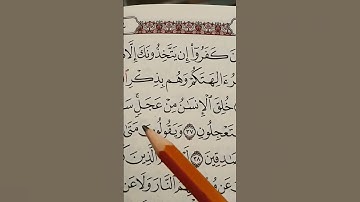 كَفَرُوٓا۟ إِن يَتَّخِذُونَكَ إِلَّا
ءَالِهَتَكُمْ وَهُم بِذِكْرِ
خُلِقَ ٱلْإِنسَٰنُ مِنْ عَجَلٍ سَ
تَعْجِلُونِ ٣٧ وَيَقُولُونَ مَتَىٰ
صَٰدِقِينَ ٣٨ ٱلَّذِينَ
عَن ٱلنَّارَ وَلَا عَن